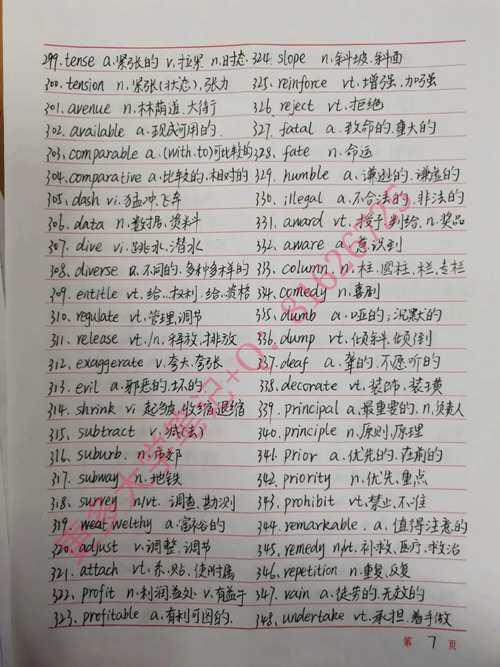 299. tense a.紧张的 v.拉紧 n.时态 324. slope n.斜坡.斜面
300. tension n.紧张(状态).张力 325. reinforce vt.增强.加强
301. avenue n.林荫道.大街 326. reject vt.拒绝
302. available a.现成可用的. 327. fatal a.致命的.重大的
303. comparable a.(with.to)可比较的 328. fate n.命运
304. comparative a.比较的.相对的 329. humble a.谦逊的.谦虚的
305. dash vi.猛冲.飞奔 330. illegal a.不合法的.非法的
306. data n.数据.资料 331. award vt.授予.判给.n.奖品
307. dive vi.跳水.潜水 332. aware a.意识到
308. diverse a.不同的.多种多样的 333. column n.柱.圆柱.栏.专栏
309. entitle vt.给..权利.给..资格 334. comedy n.喜剧
310. regulate vt.管理.调节 335. dumb a.哑的;沉默的
311. release vt./n.释放.排放 336. dump vt.倾斜.倾倒
312. exaggerate v.夸大.夸张 337. deaf a.聋的.不愿听的
313. evil a.邪恶的.坏的 338. decorate vt.装饰.装璜
314. shrink vi 起皱.收缩.退缩 339. principal a.最重要的.n.负责人
315. subtract v.减(去) 340. principle n.原则.原理
316. suburb n.市郊 341. prior a.优先的.在前的
317. subway n.地铁 342. priority n.优先.重点
318. survey n/vt.调查.勘测 343. prohibit vt.禁止.不准
319. welthy a.富裕的 344. remarkable a.值得注意的
320. adjust v.调整.调节 345. remedy n/vt.补救.医疗.救治
321. attach vt.系.贴.使附属 346. repetition n.重复.反复
322. profit n.利润.益处 v.有益于 347. vain a.徒劳的.无效的
323. profitable a.有利可图的. 348. undertake vt.承担.着手做
第 7 页